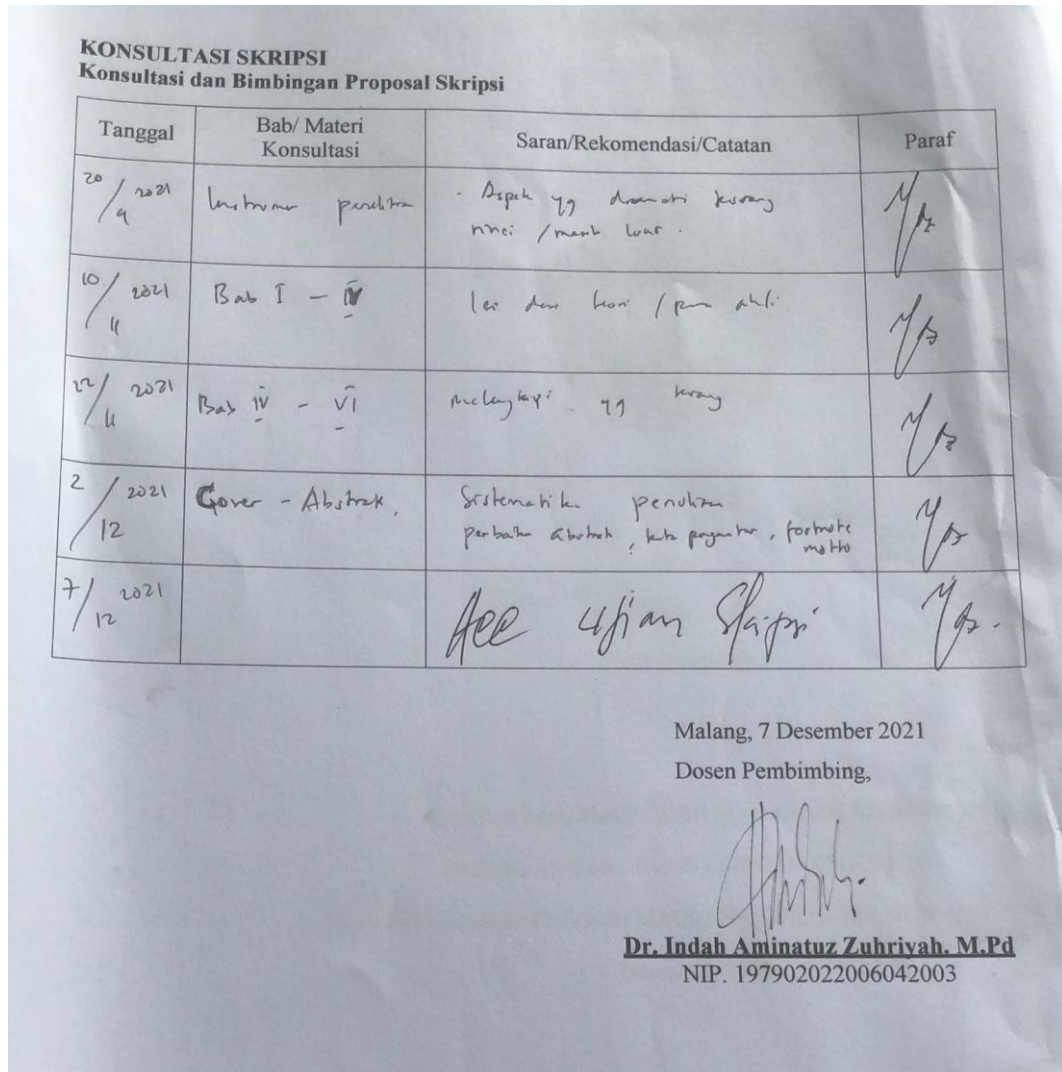 KONSULTASI SKRIPSI
Konsultasi dan Bimbingan Proposal Skripsi
Tanggal Bab/ Materi Konsultasi Saran/Rekomendasi/Catatan Paraf
20/9 2021 Instrumen penelitian - Aspek yg diamati kurang
rinci / masih luas.
10/11 2021 Bab I - IV teori / para ahli
22/11 2021 Bab IV - VI Melengkapi yg kurang
2/12 2021 Cover - Abstrak, Sistematika penulisan
perbaiki abstrak, kata pengantar, footnote
motto
7/12 2021 Acc Ujian Skripsi
Malang, 7 Desember 2021
Dosen Pembimbing,
Dr. Indah Aminatuz Zuhriyah, M.Pd
NIP. 197902022006042003